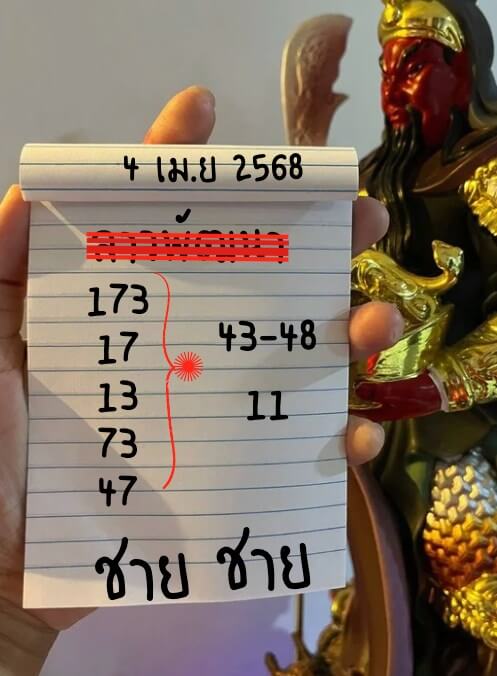 4 เม.ย 2568
ลาวพัฒนา
173
17
13
73
47
43-48
11
ชาย ชาย